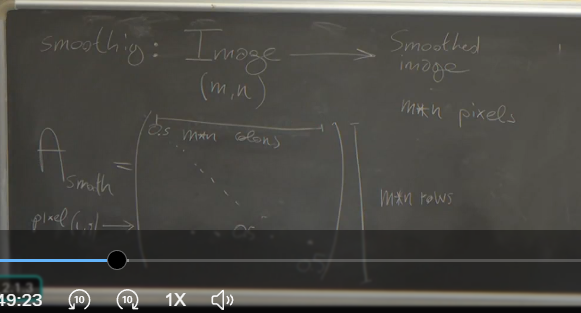 smoothig: Image → Smoothed
image
(m,n)
m*n pixels
0.5 m*n colons
A smoth =
m*n rows
pixel (1,1) →
0.5
0.5
49:23 10 10 1X